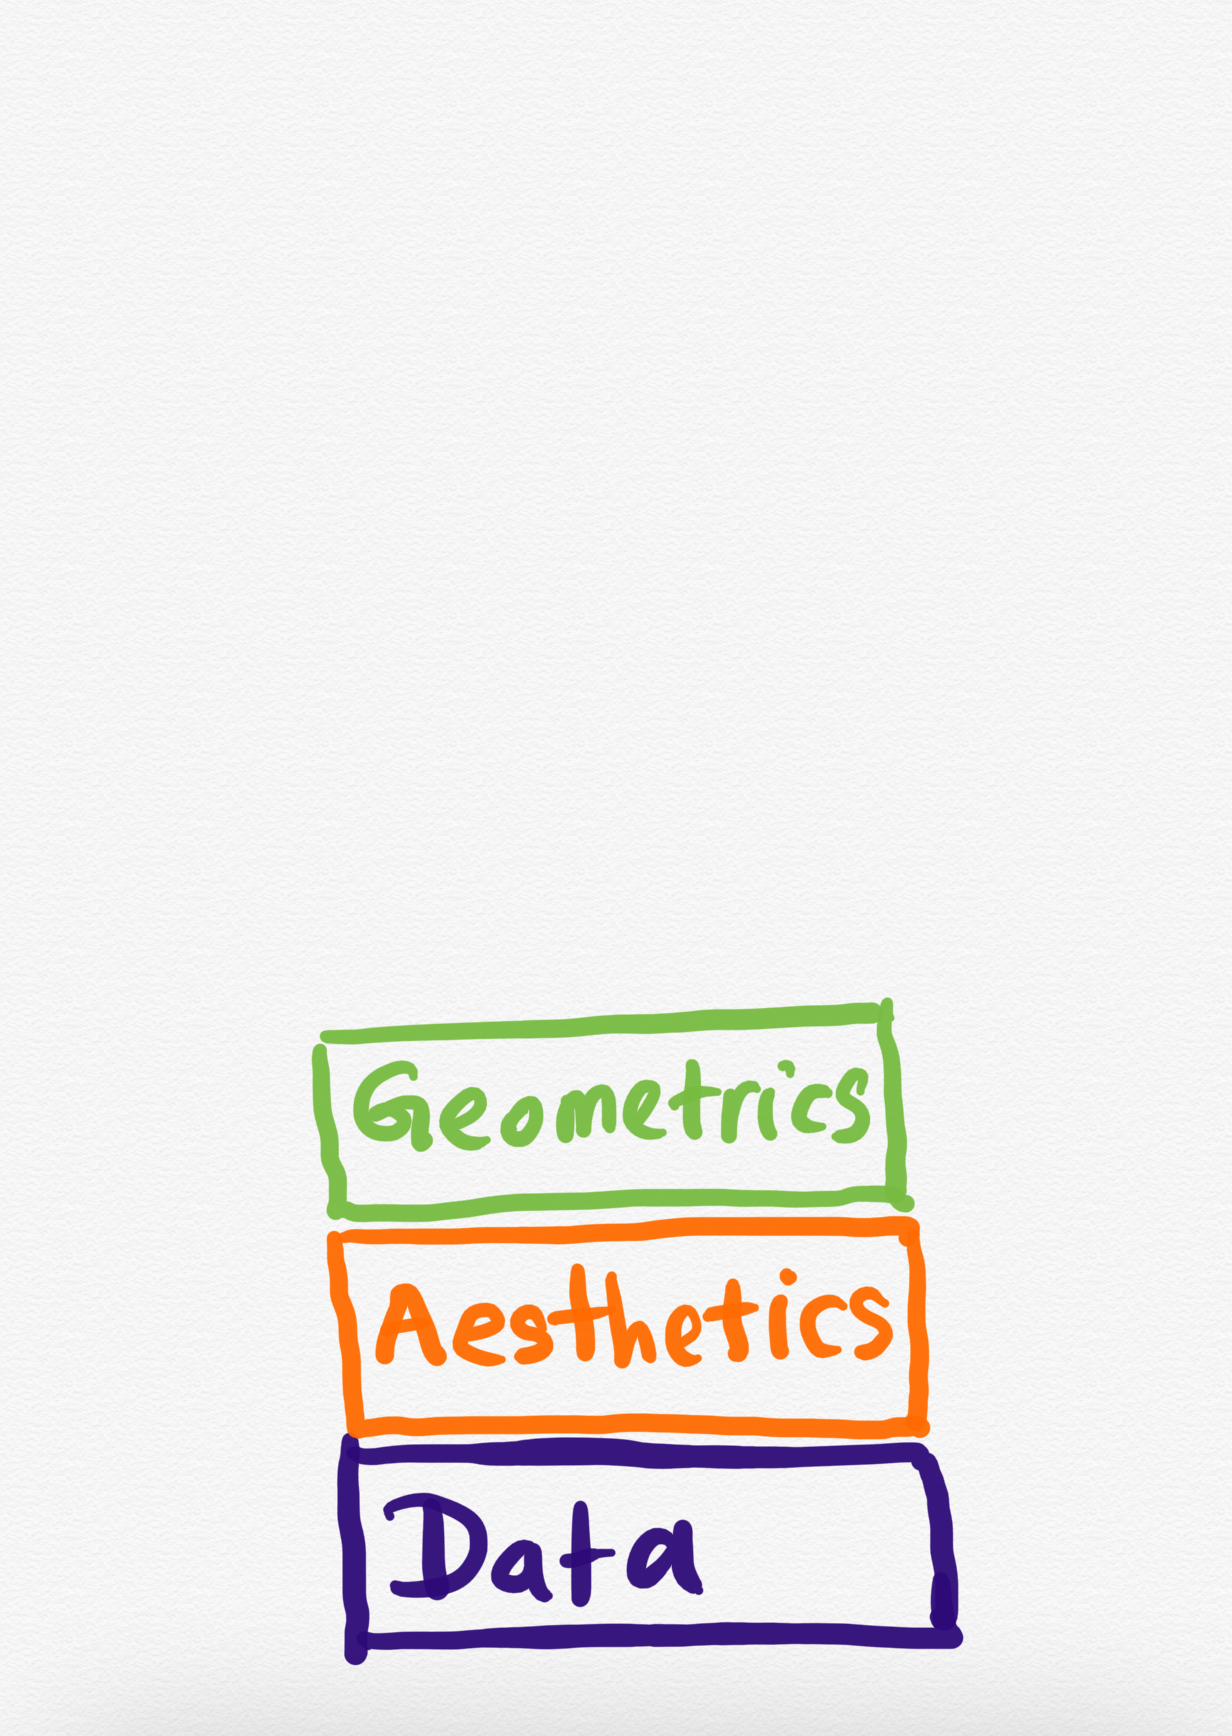 Geometrics
Aesthetics
Data